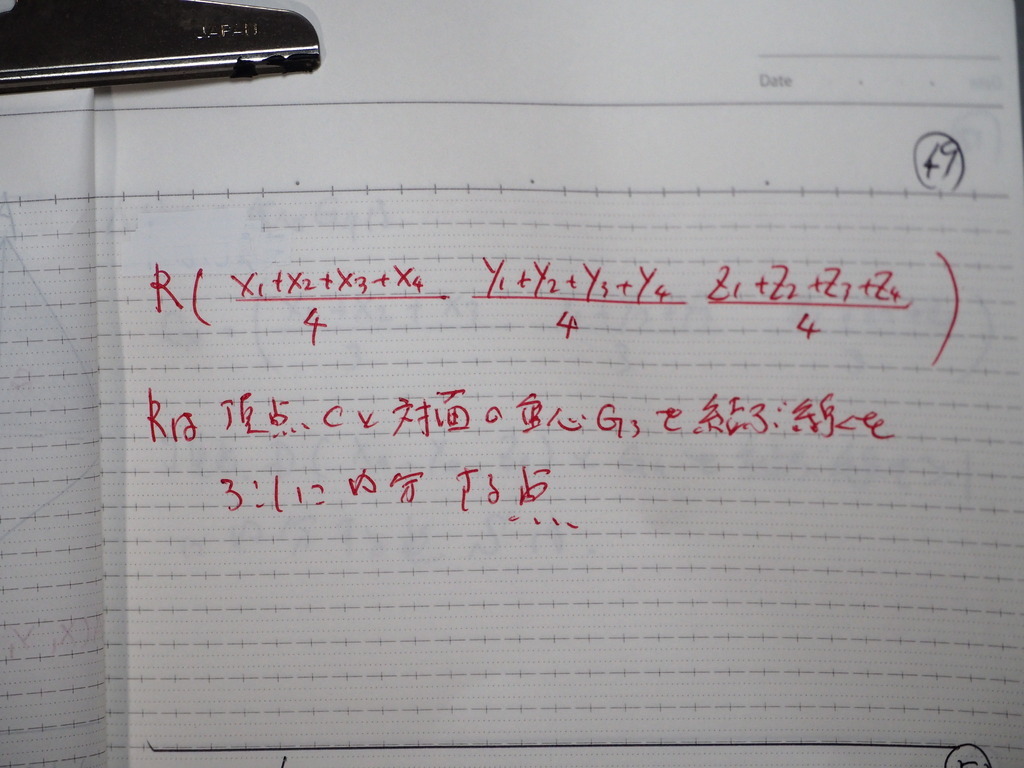 JAPAN
Date
49
R( X₁+X₂+X₃+X₄/4 Y₁+Y₂+Y₃+Y₄/4 Z₁+Z₂+Z₃+Z₄/4 )
Rは 頂点Cと対面の重心G₃を結ぶ線を
3:1に内分する点